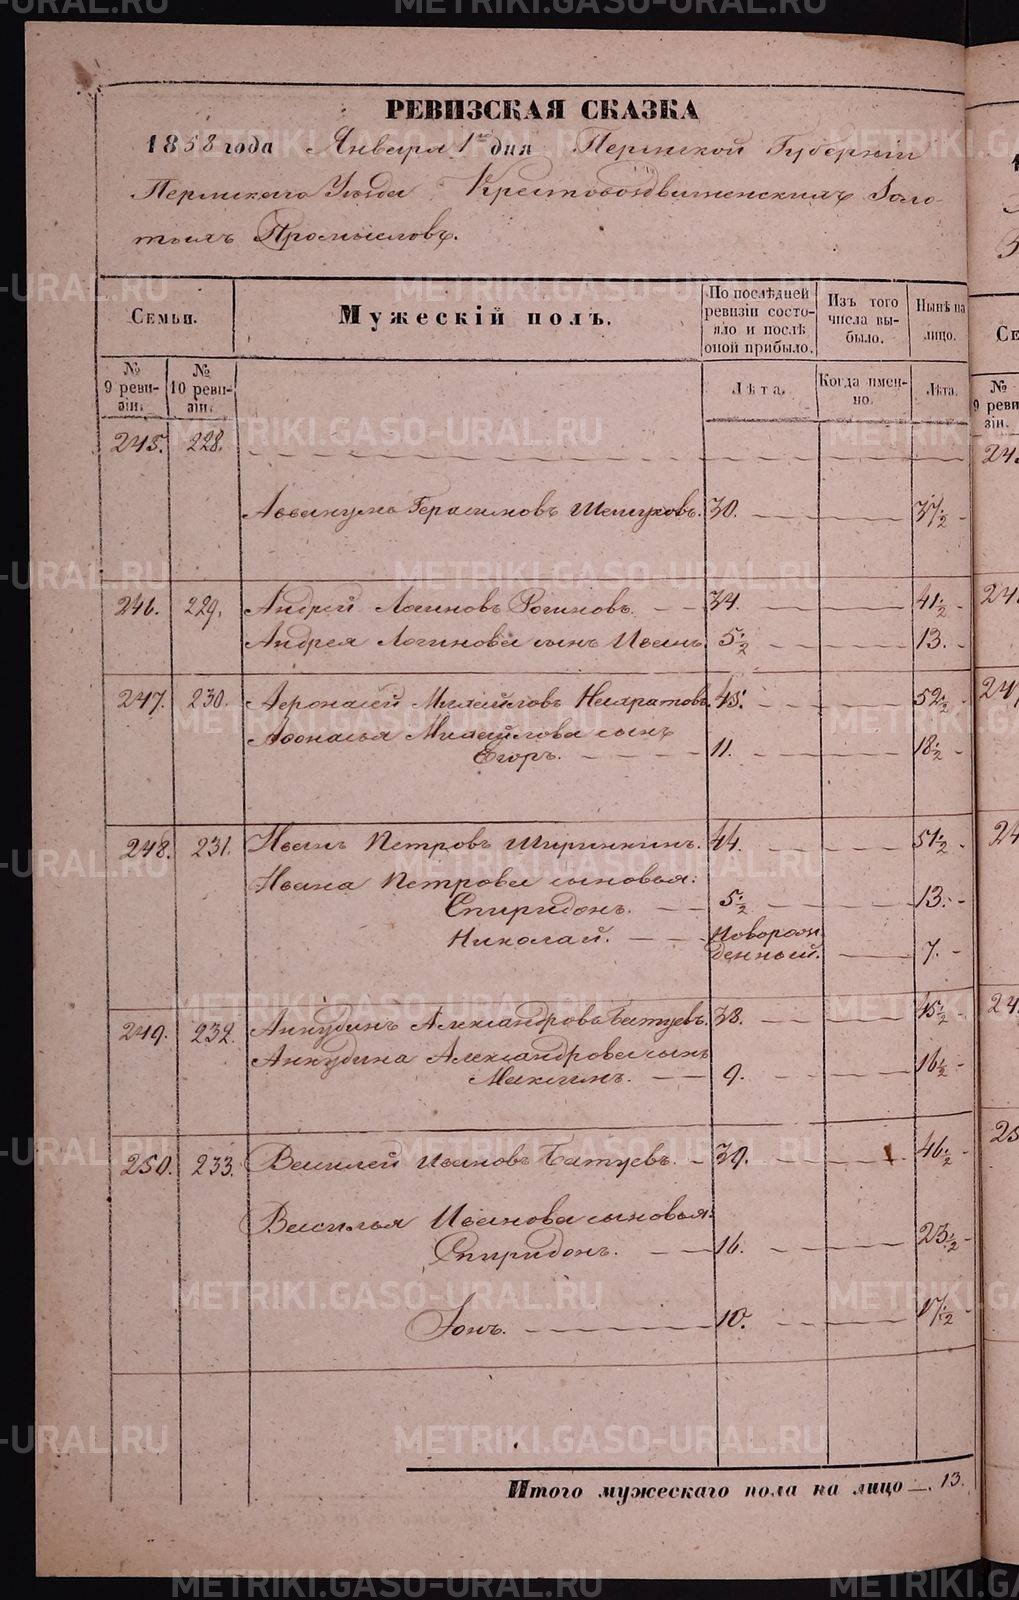 РЕВИЗСКАЯ СКАЗКА
1858 года Января 1го дня Пермской Губернiи
Пермскаго Уѣзда Крестовоздвиженскихъ Золо-
тыхъ Промысловъ.
Семьи.
Мужескiй полъ.
По послѣдней ревизiи состо-яло и послѣ оной прибыло.
Изъ того числа вы-было.
Нынѣ на лицо.
№ 9 реви-зiи.
№ 10 реви-зiи.
Лѣта.
Когда имен-но.
Лѣта.
245. 228.
Аввакумъ Герасимовъ 30. 37½
246. 229. Андрей Логиновъ Рогиновъ. 34. 41½
Андрея Логинова сынъ Иванъ. 5½ 13.
247. 230. Афонасей Михайловъ 45. 52½
Афонасья Михайлова сынъ
Егоръ. 11. 18½
248. 231. Иванъ Петровъ Ширинкинъ. 44. 51½
Ивана Петрова сыновья:
Спиридонъ. 5½ 13.
Николай. Новорож денный. 7.
249. 232. Анкудинъ Александровъ Батуевъ. 38. 45½
Анкудина Александрова сынъ
Максимъ. 9. 16½
250. 233. Василей Ивановъ Батуевъ. 39. 46½
Василья Иванова сыновья:
Спиридонъ. 16. 23½
Iонъ. 10. 17½
Итого мужескаго пола на лицо 13.
METRIKI.GASO-URAL.RU